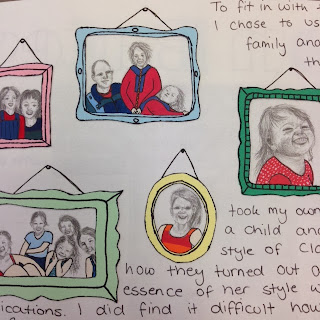 To fit in with
I chose to us
family and
th
took my own
a child and
style of Cla
how they turned out a
essence of her style w
ications. I did find it difficult how